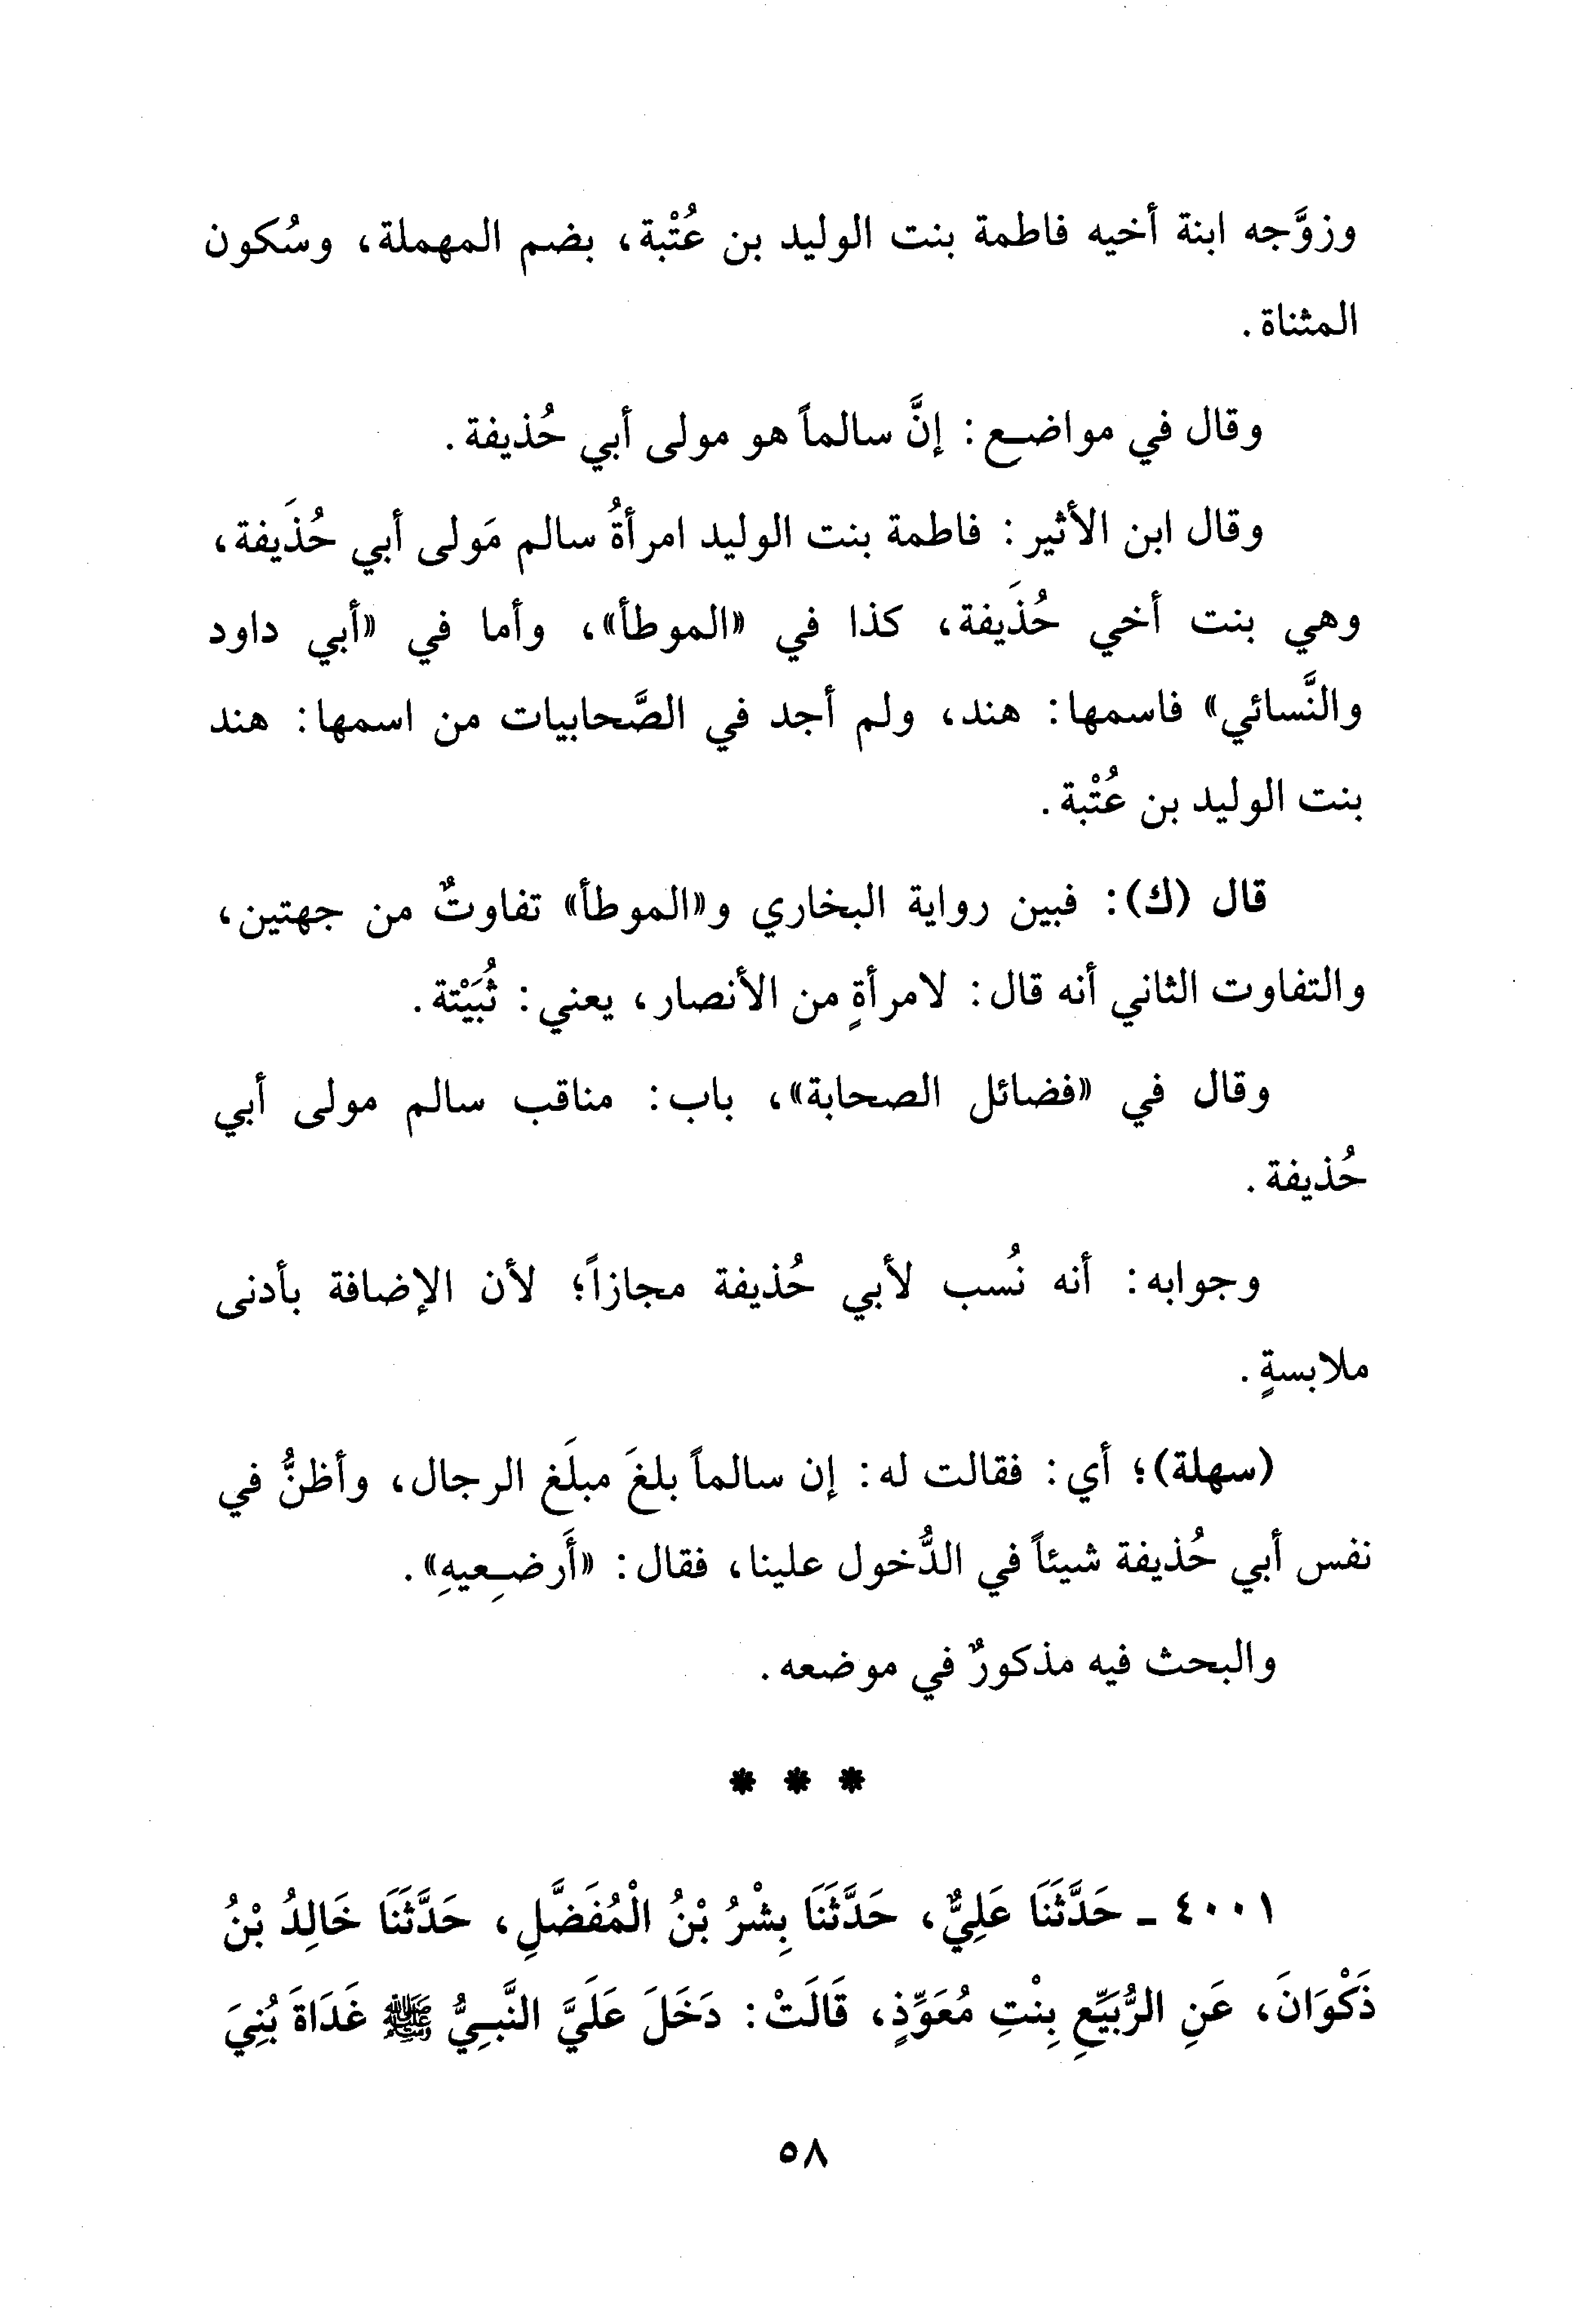 وزوَّجه ابنة أخيه فاطمة بنت الوليد بن عُتْبة، بضم المهملة، وسُكون
المثناة.
وقال في مواضع: إنَّ سالماً هو مولى أبي حُذيفة.
وقال ابن الأثير: فاطمة بنت الوليد امرأةُ سالم مَولى أبي حُذَيفة،
وهي بنت أخي حُذَيفة، كذا في «الموطأ»، وأما في «أبي داود
والنَّسائي» فاسمها: هند، ولم أجد في الصَّحابيات من اسمها: هند
بنت الوليد بن عُتْبة.
قال (ك): فبين رواية البخاري و«الموطأ» تفاوتٌ من جهتين،
والتفاوت الثاني أنه قال: لامرأةٍ من الأنصار، يعني: ثُبَيْتة.
وقال في «فضائل الصحابة»، باب: مناقب سالم مولى أبي
حُذيفة.
وجوابه: أنه نُسب لأبي حُذيفة مجازاً؛ لأن الإضافة بأدنى
ملابسةٍ.
(سهلة)؛ أي: فقالت له: إن سالماً بلغَ مبلَغ الرجال، وأظنُّ في
نفس أبي حُذيفة شيئاً في الدُّخول علينا، فقال: «أَرضِعيهِ».
والبحث فيه مذكورٌ في موضعه.
* * *
٤٠٠١ - حَدَّثَنَا عَلِيٌّ، حَدَّثَنَا بِشْرُ بْنُ الْمُفَضَّلِ، حَدَّثَنَا خَالِدُ بْنُ
ذَكْوَانَ، عَنِ الرُّبَيِّعِ بِنْتِ مُعَوِّذٍ، قَالَتْ: دَخَلَ عَلَيَّ النَّبِيُّ ﷺ غَدَاةَ بُنِيَ
٥٨